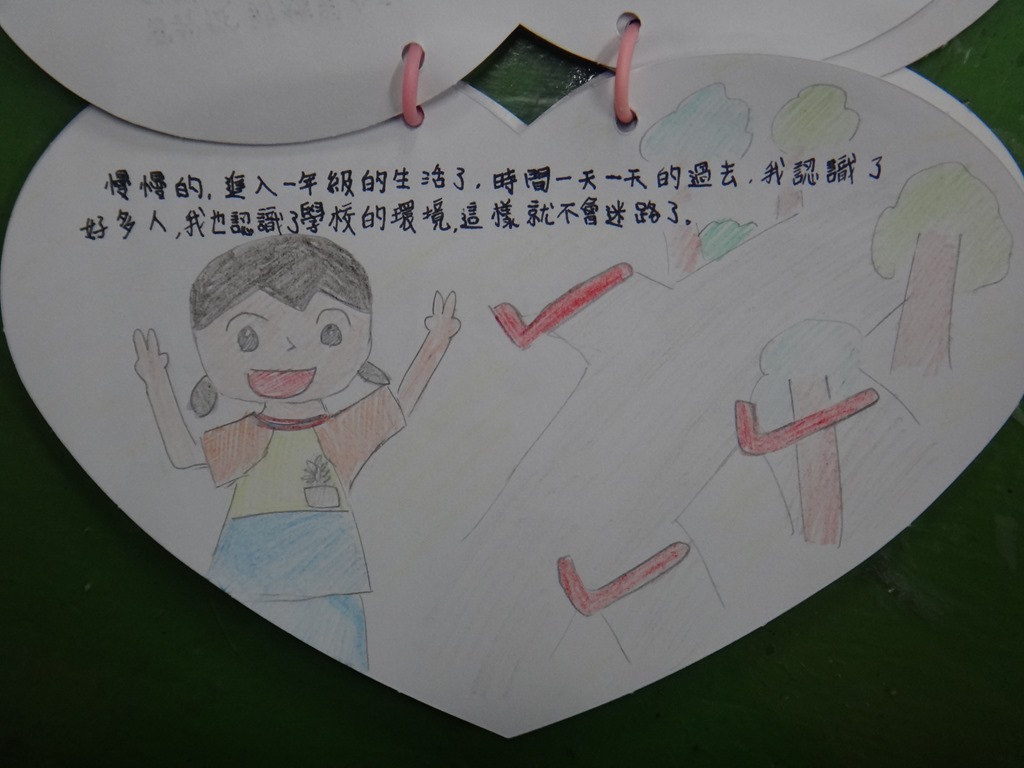 慢慢的,進入一年級的生活了,時間一天一天的過去,我認識了
好多人,我也認識了學校的環境,這樣就不會迷路了。